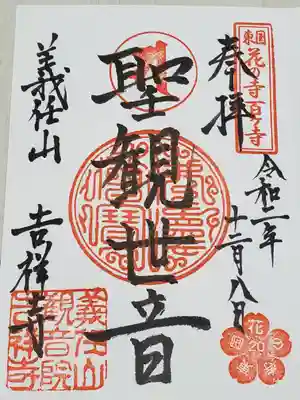 東国花の寺百ヶ寺
奉拝
令和二年
十二月八日
聖観世音
義任山
吉祥寺
義任山
観音院
吉祥寺